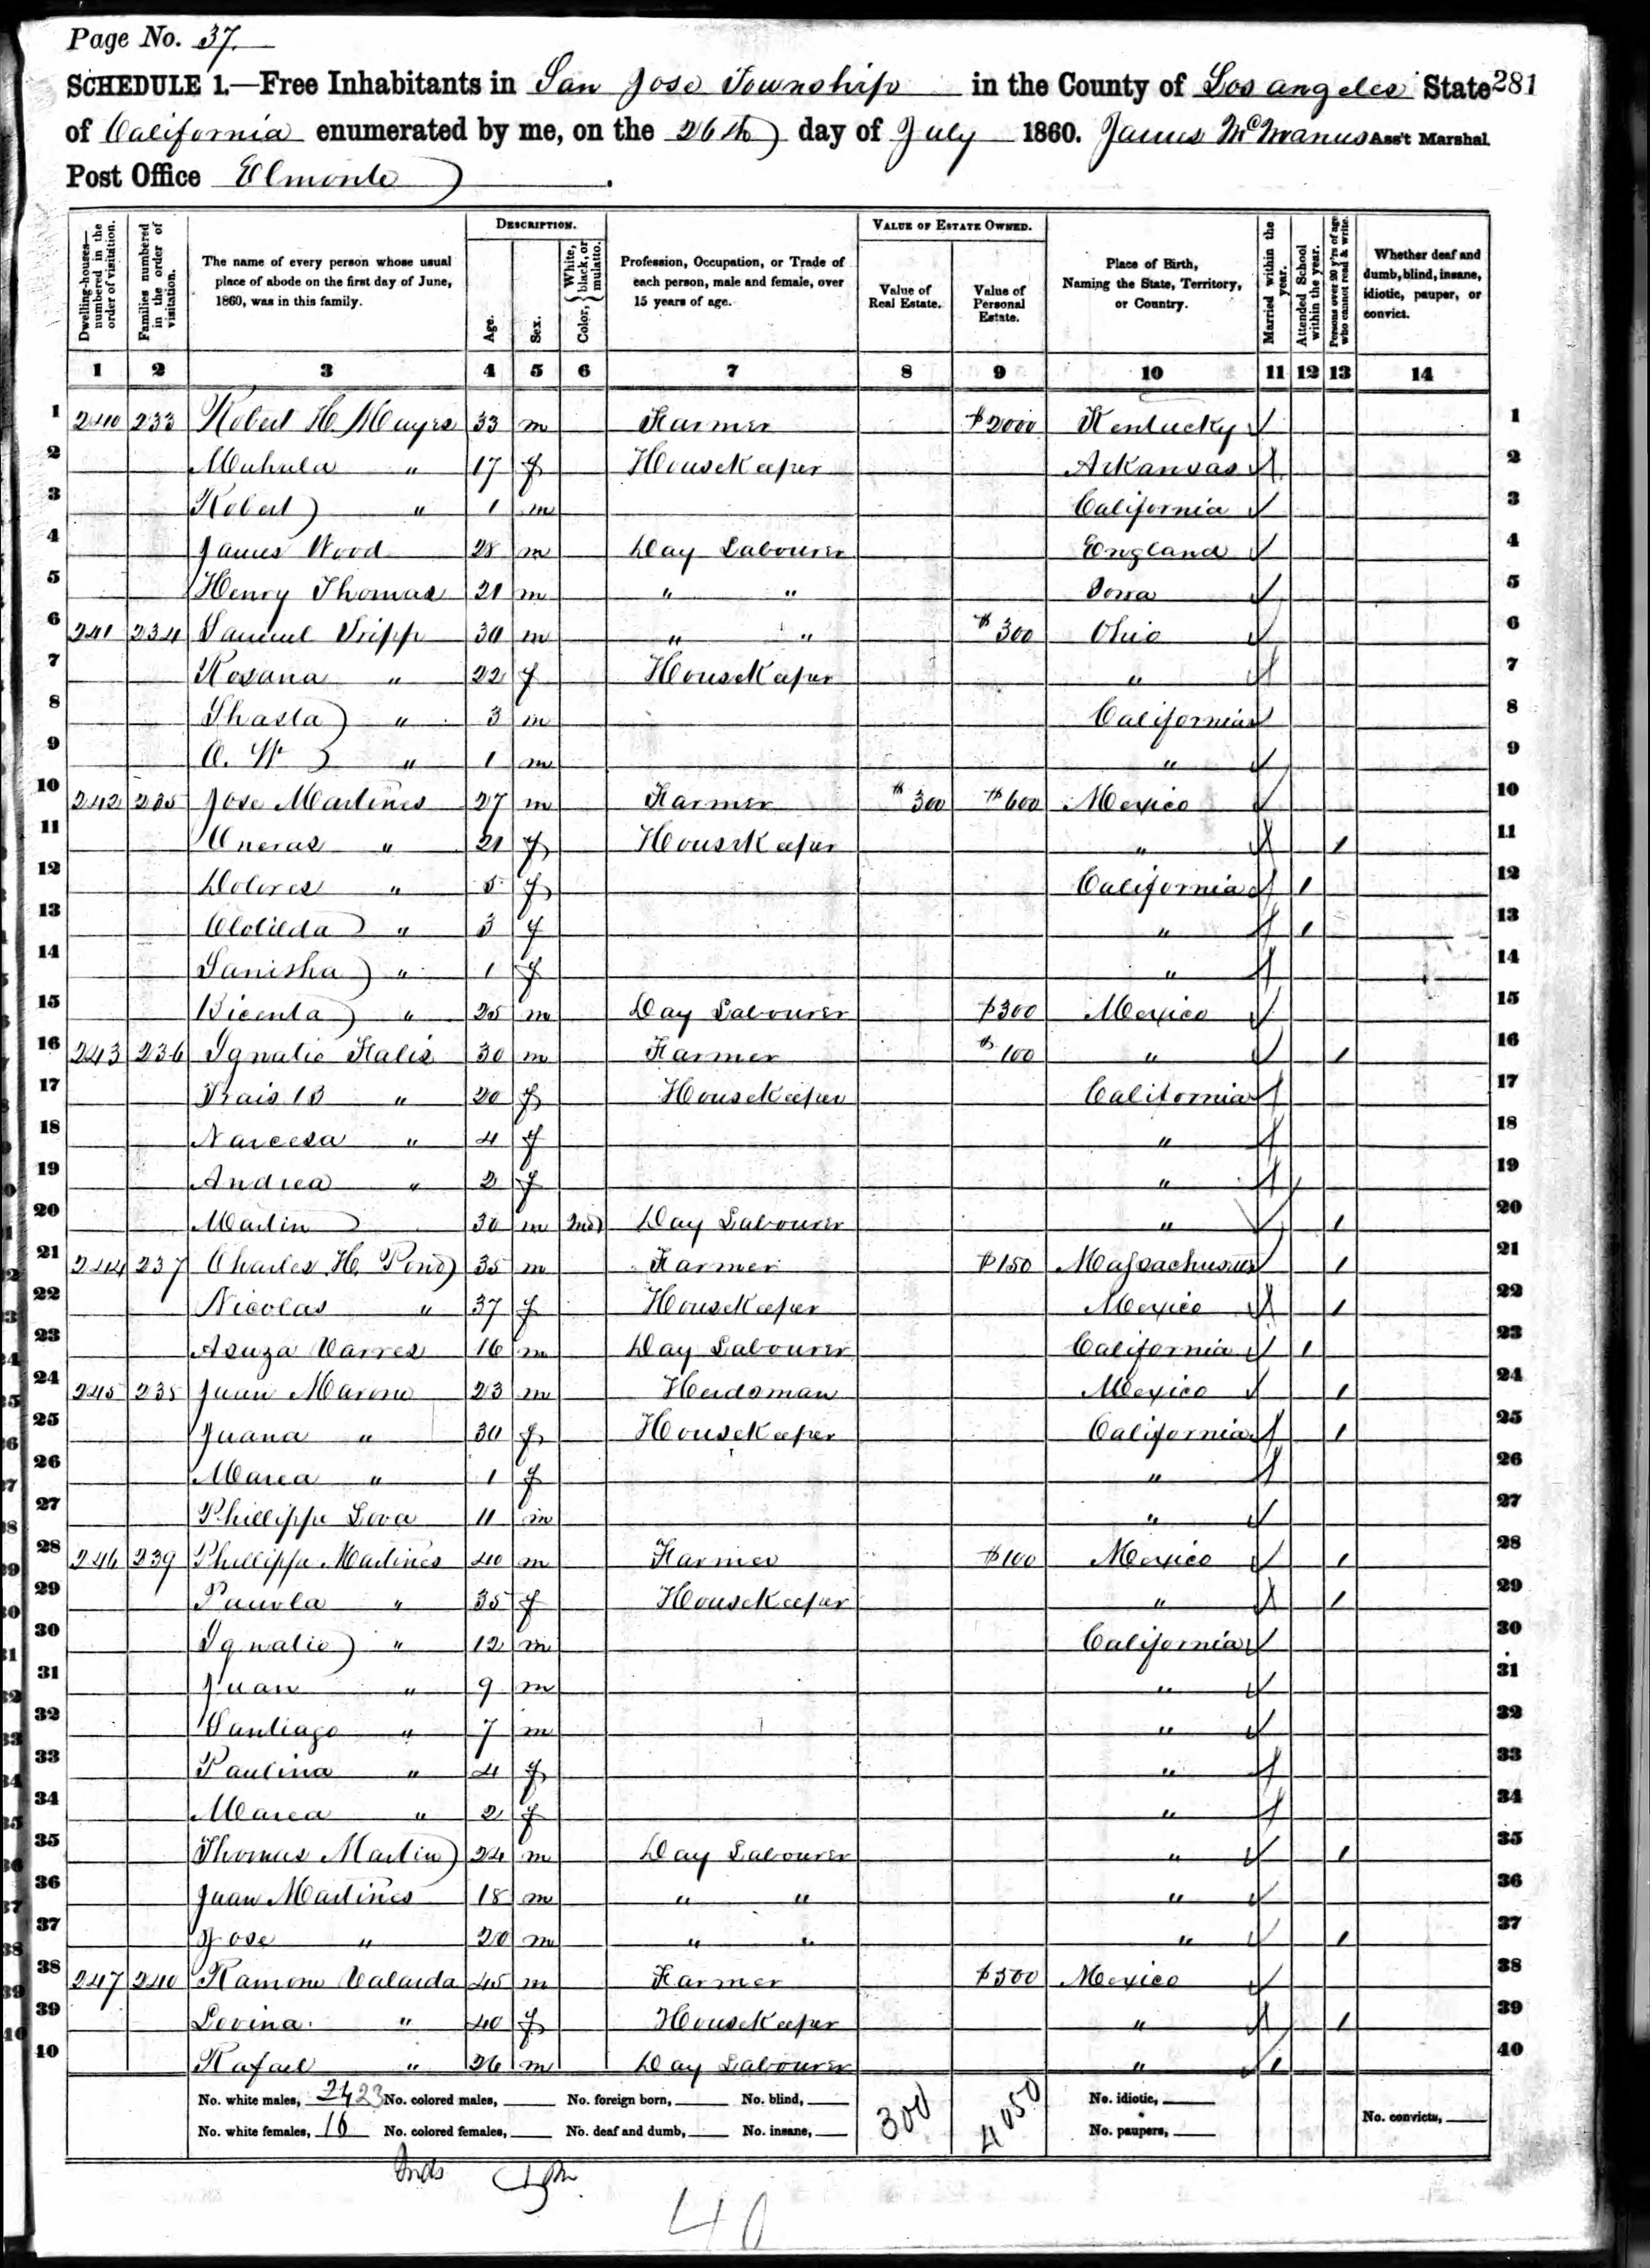 Page No. 37.
SCHEDULE 1.—Free Inhabitants in San Jose Township in the County of Los Angeles State 281
of California enumerated by me, on the 26th day of July 1860. James McManus Ass't Marshal.
Post Office Elmonte.
Dwelling-houses—numbered in the order of visitation.
Families numbered in the order of visitation.
The name of every person whose usual place of abode on the first day of June, 1860, was in this family.
DESCRIPTION.
Age.
Sex.
Color, { White, black, or mulatto.
Profession, Occupation, or Trade of each person, male and female, over 15 years of age.
VALUE OF ESTATE OWNED.
Value of Real Estate.
Value of Personal Estate.
Place of Birth, Naming the State, Territory, or Country.
Married within the year.
Attended School within the year.
Persons over 20 y'rs of age who cannot read & write.
Whether deaf and dumb, blind, insane, idiotic, pauper, or convict.
1 2 3 4 5 6 7 8 9 10 11 12 13 14
1 240 233 Robert H. Mayes 33 m Farmer $2000 Kentucky 1
2 Mahula " 17 f HouseKeeper Arkansas 2
3 Robert " 1 m California 3
4 James Wood 28 m Day Labourer England 4
5 Henry Thomas 21 m " " Iowa 5
6 241 234 Samuel Tripp 30 m " " $300 Ohio 6
7 Rosana " 22 f HouseKeeper " 7
8 Shasta " 3 m California 8
9 " 1 m " 9
10 242 235 Jose Martines 27 m Farmer $300 $600 Mexico 10
11 " 21 f HouseKeeper " 1 11
12 Dolores " 5 f California 1 12
13 Clotilda " 3 f " 1 13
14 Sanisha " 1 f " 14
15 Bicenta " 25 m Day Labourer $300 Mexico 15
16 243 236 Ignatio Falis 30 m Farmer $100 " 1 16
17 " 20 f HouseKeeper California 17
18 Narcesa " 4 f " 18
19 Andrea " 2 f " 19
20 Martin 30 m Ind Day Labourer " 1 20
21 244 237 Charles H. Pond 35 m Farmer $150 Massachusetts 1 21
22 Nicolas " 37 f HouseKeeper Mexico 1 22
23 Asuza Varres 16 m Day Labourer California 1 23
24 245 238 Juan Marone 23 m Herdsman Mexico 1 24
25 Juana " 30 f HouseKeeper California 1 25
26 Marea " 1 f " 26
27 Phillippe Lova 11 m " 27
28 246 239 Phillippe Martines 40 m Farmer $100 Mexico 1 28
29 Pauola " 35 f HouseKeeper " 1 29
30 Ignatio " 12 m California 30
31 Juan " 9 m " 31
32 Santiago " 7 m " 32
33 Paulina " 4 f " 33
34 Marea " 2 f " 34
35 Thomas Martin 24 m Day Labourer " 1 35
36 Juan Martines 18 m " " " 36
37 Jose " 20 m " " " 1 37
38 247 240 Ramone Valarda 45 m Farmer $500 Mexico 38
39 Lovina " 40 f HouseKeeper " 1 39
40 Rafael " 26 m Day Labourer " 1 40
No. white males, 24 23 No. colored males, No. foreign born, No. blind, 300 4050 No. idiotic,
No. white females, 16 No. colored females, No. deaf and dumb, No. insane, No. paupers, No. convicts,
Inds 1 m
40